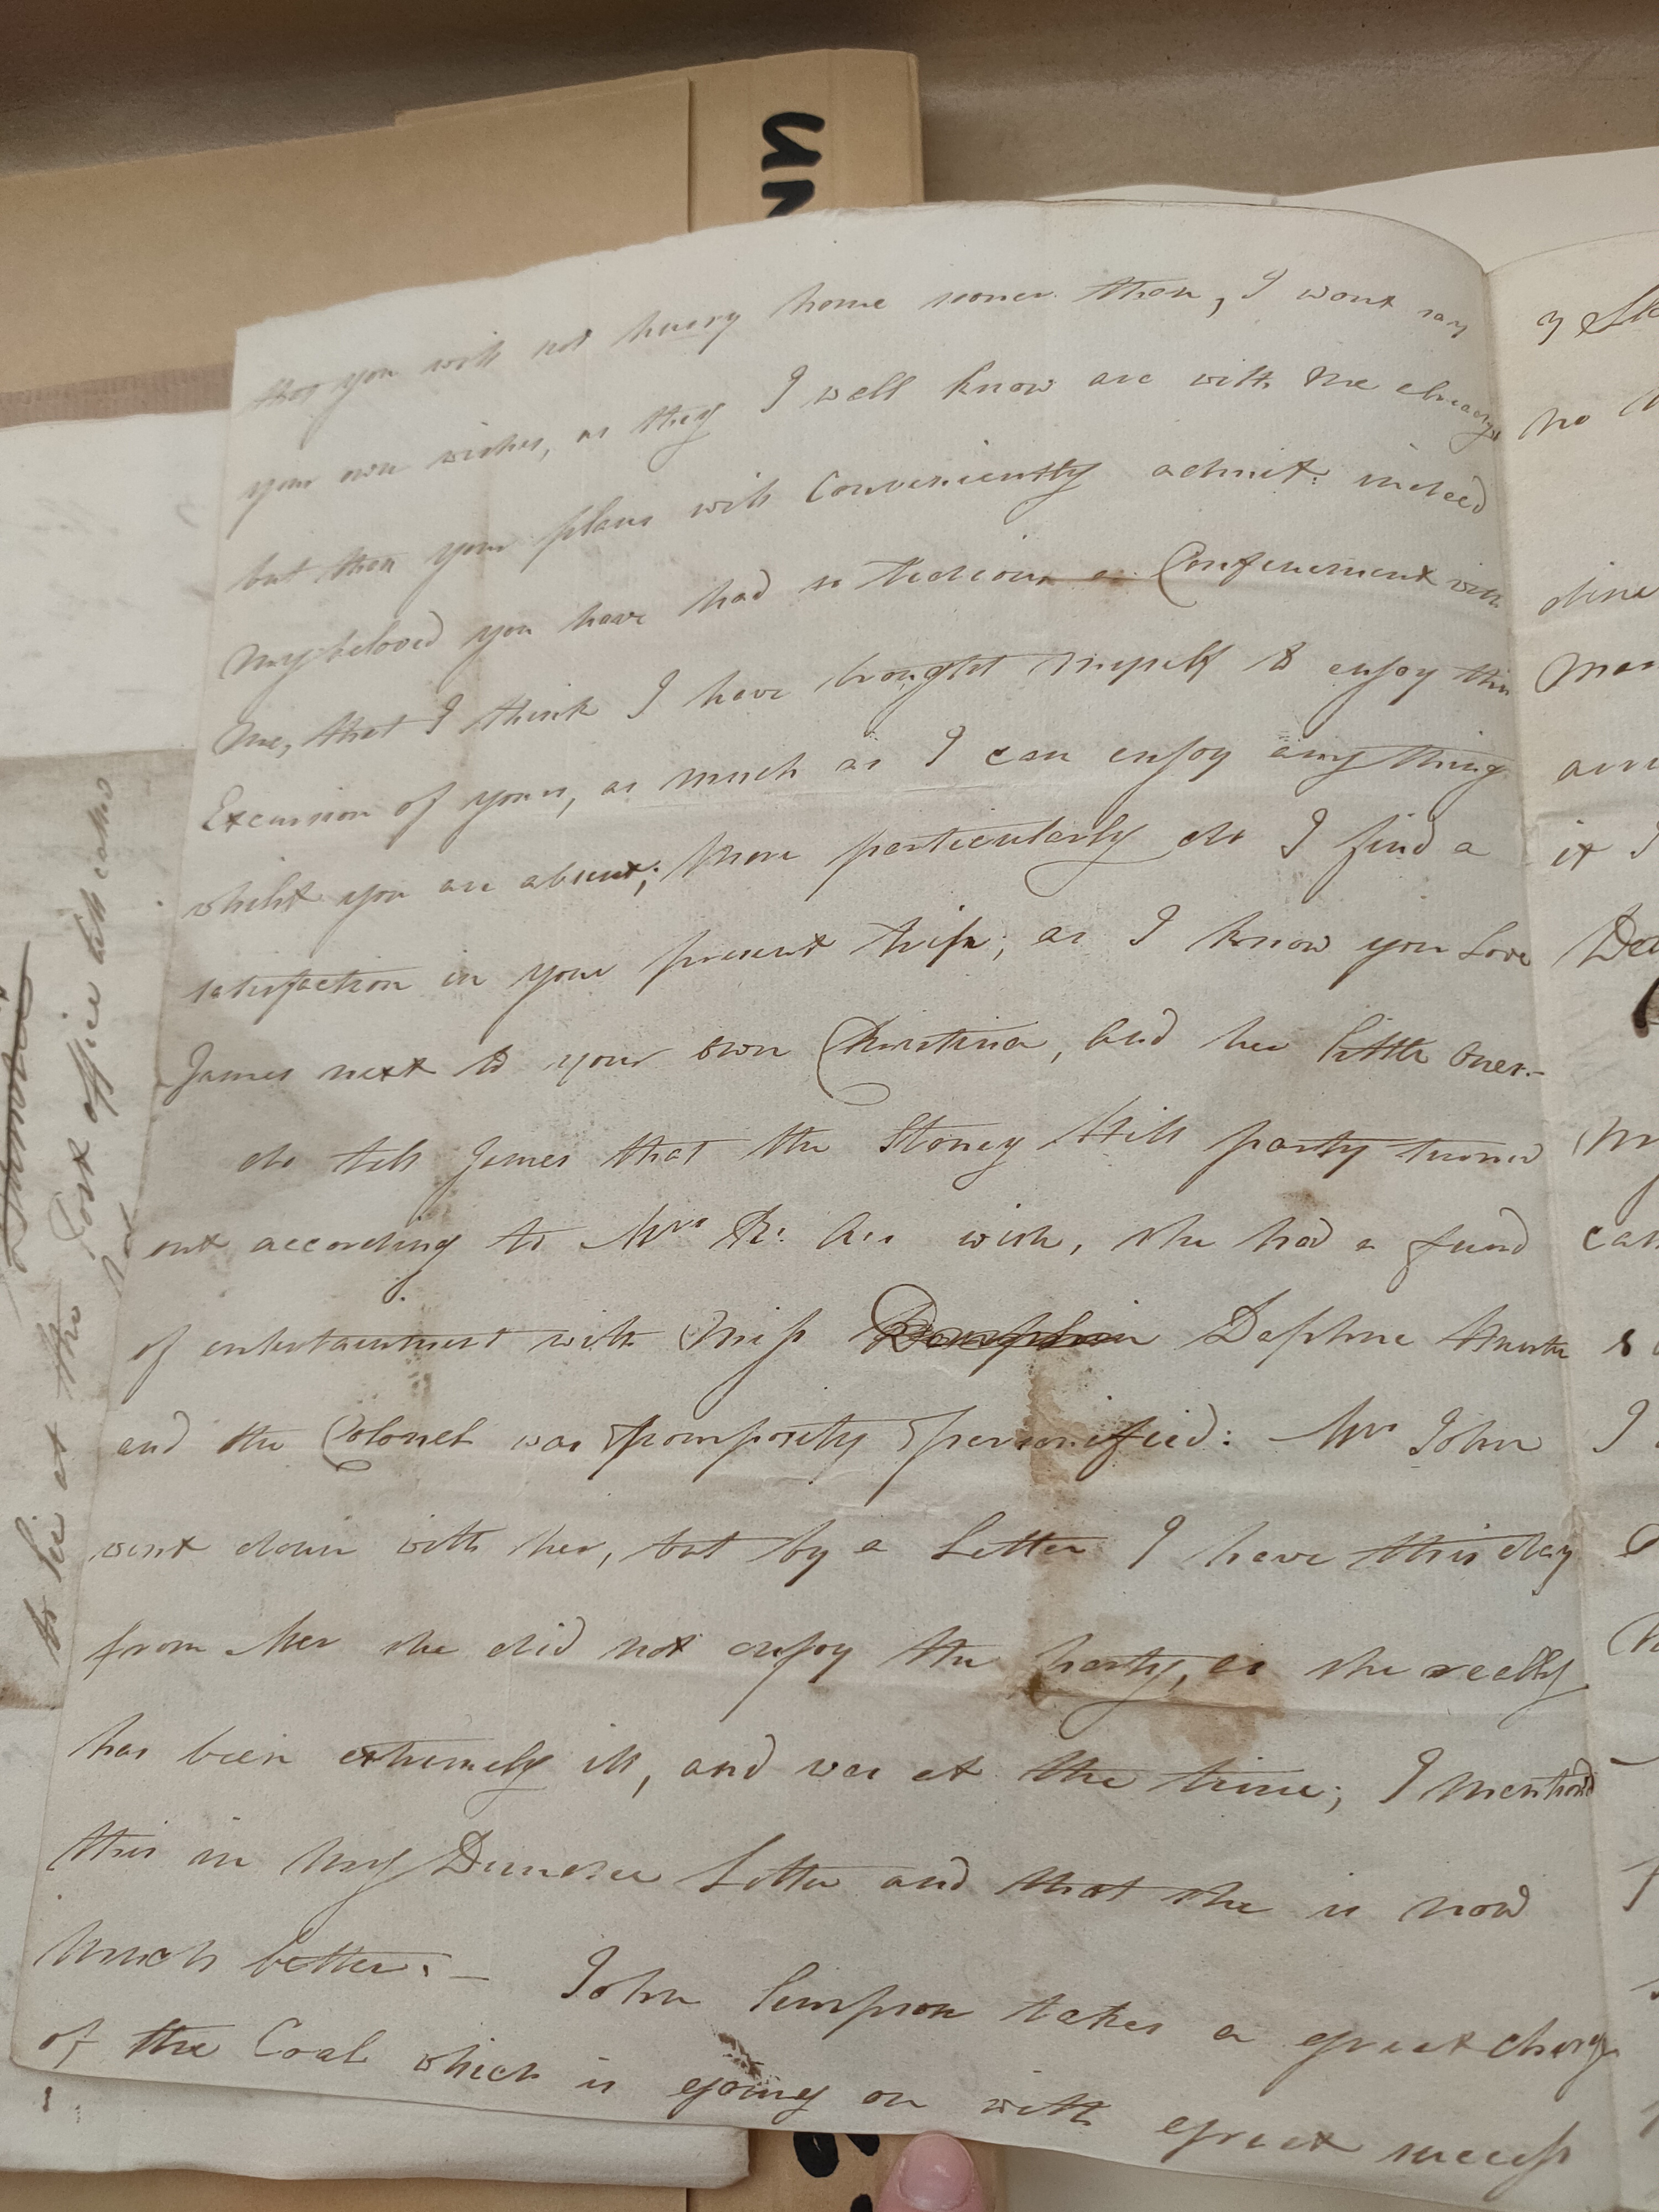 that you will not hurry home sooner than, I wont say
your own wishes, as they I well know are with me always
but than your plans will Conveniently admit: indeed
my beloved you have had so tedious a Confinement with
me, that I think I have brought myself to enjoy this
Excursion of yours, as much as I can enjoy any thing
whilst you are absent; more particularly do I find a
satisfaction in your present trip; as I know you Love
James next to your own Christina, and her little ones.-
do tell James that the Stoney Hill party turned
out according to Mrs R: her wish, she had a fund
of entertainment with Miss Daphne
and the Colonel was pomposity personified: Mrs John
went down with her, but by a Letter I have this day
from Her she did not enjoy the party, as she really
has been extremely ill, and was at the time; I mentiond
this in my Dundee Letter and that she is now
much better:- John Simpson takes a great charge
of the Coal which is going on with great success
to lie at the Post office till called
for
no
dine
it I
I